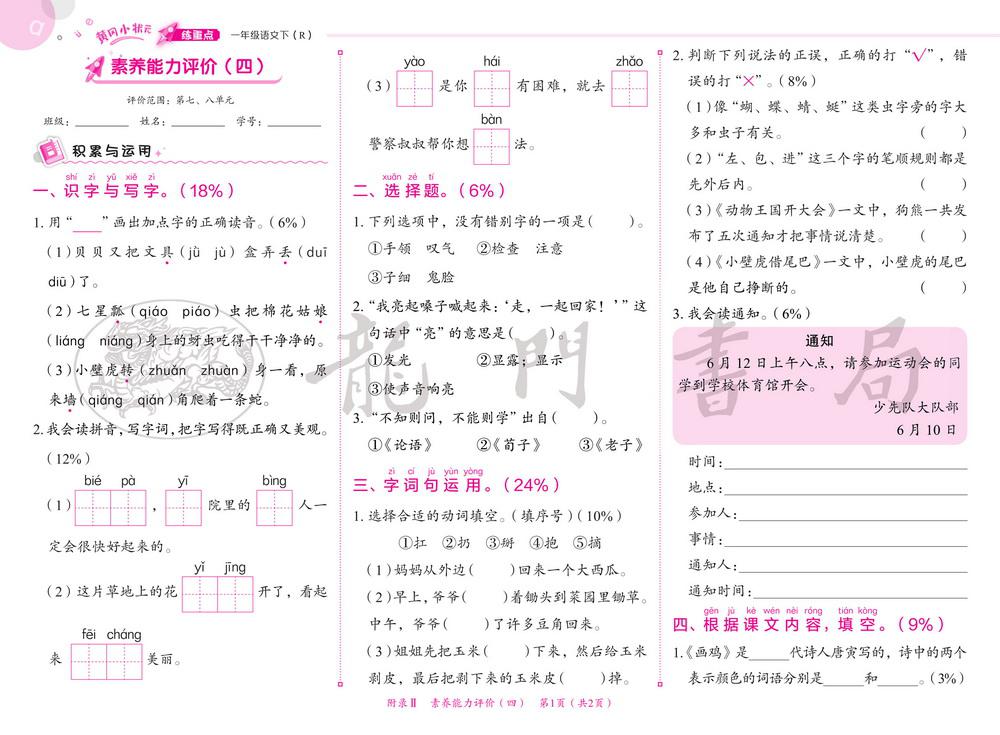 黄冈小状元 练重点 一年级语文下（R）
素养能力评价（四）
评价范围：第七、八单元
班级：________ 姓名：________ 学号：________
积累与运用
shí zì yǔ xiě zì
一、识字与写字。（18%）
1. 用“____”画出加点字的正确读音。（6%）
（1）贝贝又把文具（jǜ jù）盒弄丢（duī
diū）了。
（2）七星瓢（qiáo piáo）虫把棉花姑娘
（liáng niáng）身上的蚜虫吃得干干净净的。
（3）小壁虎转（zhuǎn zhuàn）身一看，原
来墙（qiáng qián）角爬着一条蛇。
2. 我会读拼音，写字词，把字写得既正确又美观。
（12%）
bié pà yī bìng
（1），院里的 人一
定会很快好起来的。
yǐ jīng
（2）这片草地上的花 开了，看起
fēi cháng
来 美丽。
yào hái zhǎo
（3） 是你 有困难，就去
bàn
警察叔叔帮你想 法。
xuǎn zé tí
二、选择题。（6%）
1. 下列选项中，没有错别字的一项是（ ）。
①手领 叹气 ②检查 注意
③子细 鬼脸
2. “我亮起嗓子喊起来：‘走，一起回家！’”这
句话中“亮”的意思是（ ）。
①发光 ②显露；显示
③使声音响亮
3. “不知则问，不能则学”出自（ ）。
①《论语》 ②《荀子》 ③《老子》
zì cí jù yùn yòng
三、字词句运用。（24%）
1. 选择合适的动词填空。（填序号）（10%）
①扛 ②扔 ③掰 ④抱 ⑤摘
（1）妈妈从外边（ ）回来一个大西瓜。
（2）早上，爷爷（ ）着锄头到菜园里锄草。
中午，爷爷（ ）了许多豆角回来。
（3）姐姐先把玉米（ ）下来，然后给玉米
剥皮，最后把剥下来的玉米皮（ ）掉。
2. 判断下列说法的正误，正确的打“√”，错
误的打“×”。（8%）
（1）像“蝴、蝶、蜻、蜓”这类虫字旁的字大
多和虫子有关。 （ ）
（2）“左、包、进”这三个字的笔顺规则都是
先外后内。 （ ）
（3）《动物王国开大会》一文中，狗熊一共发
布了五次通知才把事情说清楚。 （ ）
（4）《小壁虎借尾巴》一文中，小壁虎的尾巴
是他自己挣断的。 （ ）
3. 我会读通知。（6%）
通知
6月12日上午八点，请参加运动会的同
学到学校体育馆开会。
少先队大队部
6月10日
时间：________
地点：________
参加人：________
事情：________
通知人：________
通知时间：________
gēn jù kè wén nèi róng tián kòng
四、根据课文内容，填空。（9%）
1.《画鸡》是______代诗人唐寅写的，诗中的两个
表示颜色的词语分别是______和______。（3%）
附录Ⅱ 素养能力评价（四） 第1页（共2页）
龍門書局